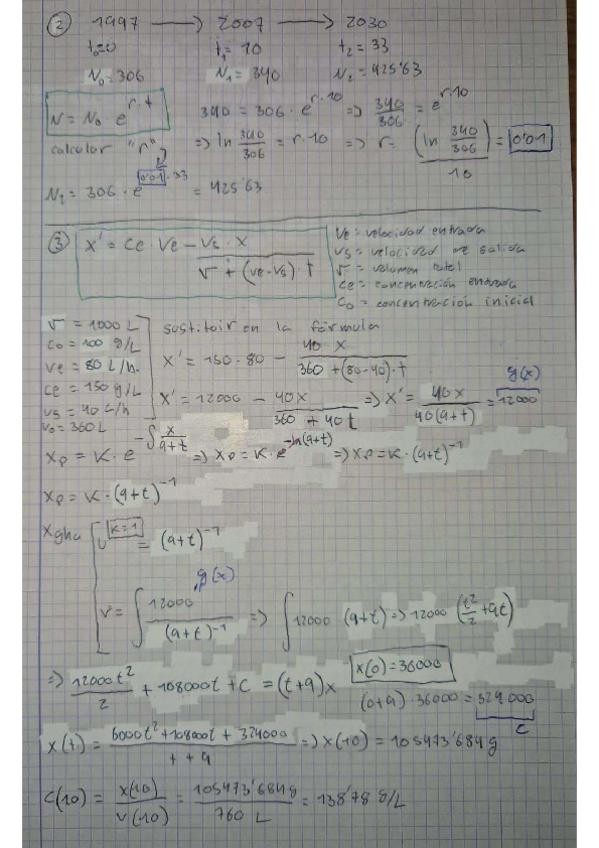 ② 1997 → 2007 → 2030
t₀=0 t₁= 10 t₂ = 33
N₀=306 N₁= 340 N₂ = 425'63
N = N₀ e^(r·t) 340 = 306 · e^(r·10) => 340/306 = e^(r·10)
calcular "r" => ln 340/306 = r·10 => r= (ln 340/306)/10 = 0'01
N₂ = 306 · e^(0'01·33) = 425'63
③ X' = Ce · Ve - Vs · X / (V + (Ve-Vs) · t)
Ve = velocidad entrada
Vs = velocidad de salida
V = volumen total
Ce = concentración entrada
Co = concentración inicial
V = 1000 L
Co = 100 g/L
Ve = 80 L/h.
Ce = 150 g/L
Vs = 40 L/h
V₀ = 360 L
sustituir en la fórmula
X' = 150·80 - 40 X / (360 + (80-40)·t)
X' = 12000 - 40X / (360 + 40t) => X' = 40X / 40(9+t) = 12000 g(x)
Xp = K · e^(-∫ x/(9+t)) => Xp = K·e^(-ln(9+t)) => Xp = K·(9+t)⁻¹
Xp = K · (9+t)⁻¹
Xgha U K=1 = (9+t)⁻¹
V = ∫ 12000 / (9+t)⁻¹ g(x) => ∫ 12000 (9+t) => 12000 (t²/2 + 9t)
=> 12000t²/2 + 108000t + C = (t+9)x X(0)=36000
(0+9)·36000 = 324000 C
X(t) = (6000t²+108000t + 324000) / (t + 9) => X(10) = 105473'684g
C(10) = X(10)/V(10) = 105473'684g / 760 L = 138'78 g/L